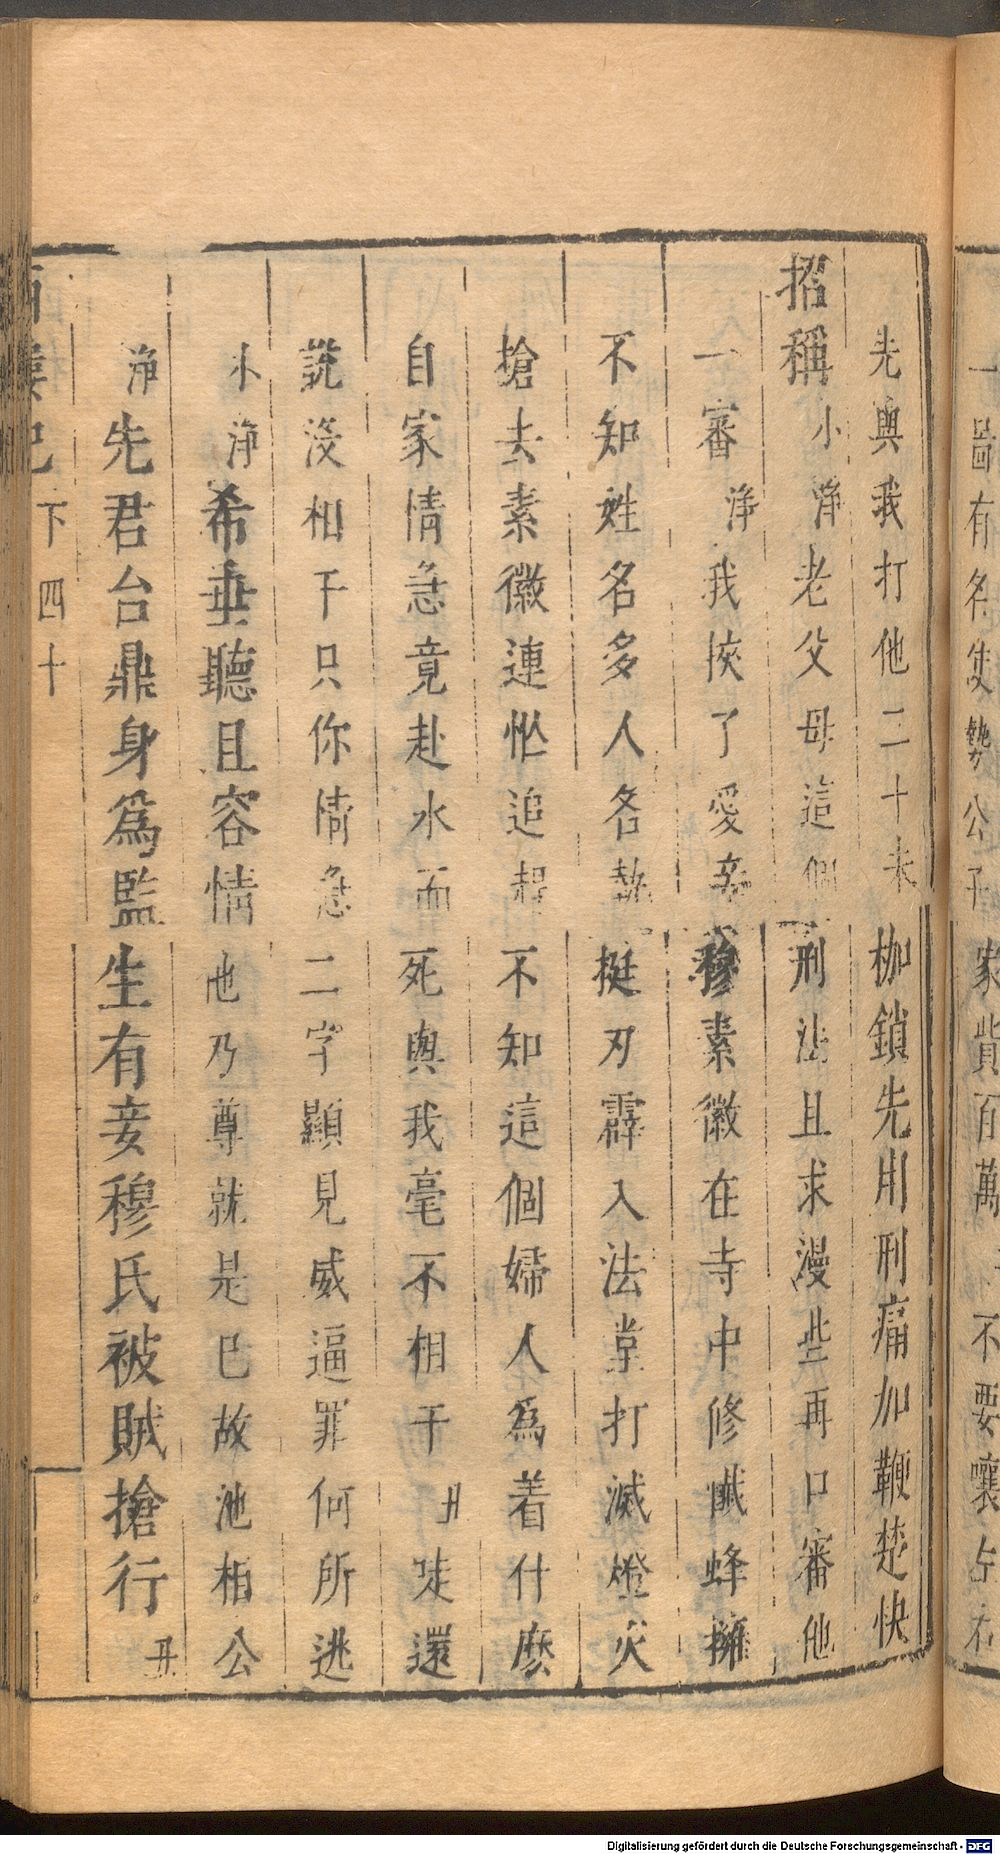 一啚有名使勢公子家貲百萬不要嚷占右
先與我打他二十末枷鎖先用刑痛加鞭楚快
招稱小淨老父母這個刑法且求漫些再口審他
一審淨我挾了愛妾穆素徽在寺中修懺蜂擁
不知姓名多人各執挺刃霹入法堂打滅燈火
搶去素徽連忙追趕不知這個婦人為着什麼
自家情急竟赴水而死與我毫不相干丑這還
說沒相干只你情急二字顯見威逼罪何所逃
小淨希垂聽且容情他乃尊就是已故池相公
淨先君台鼎身為監生有妾穆氏被賊搶行丑
西樓記 下 四十
Digitalisierung gefördert durch die Deutsche Forschungsgemeinschaft - DFG